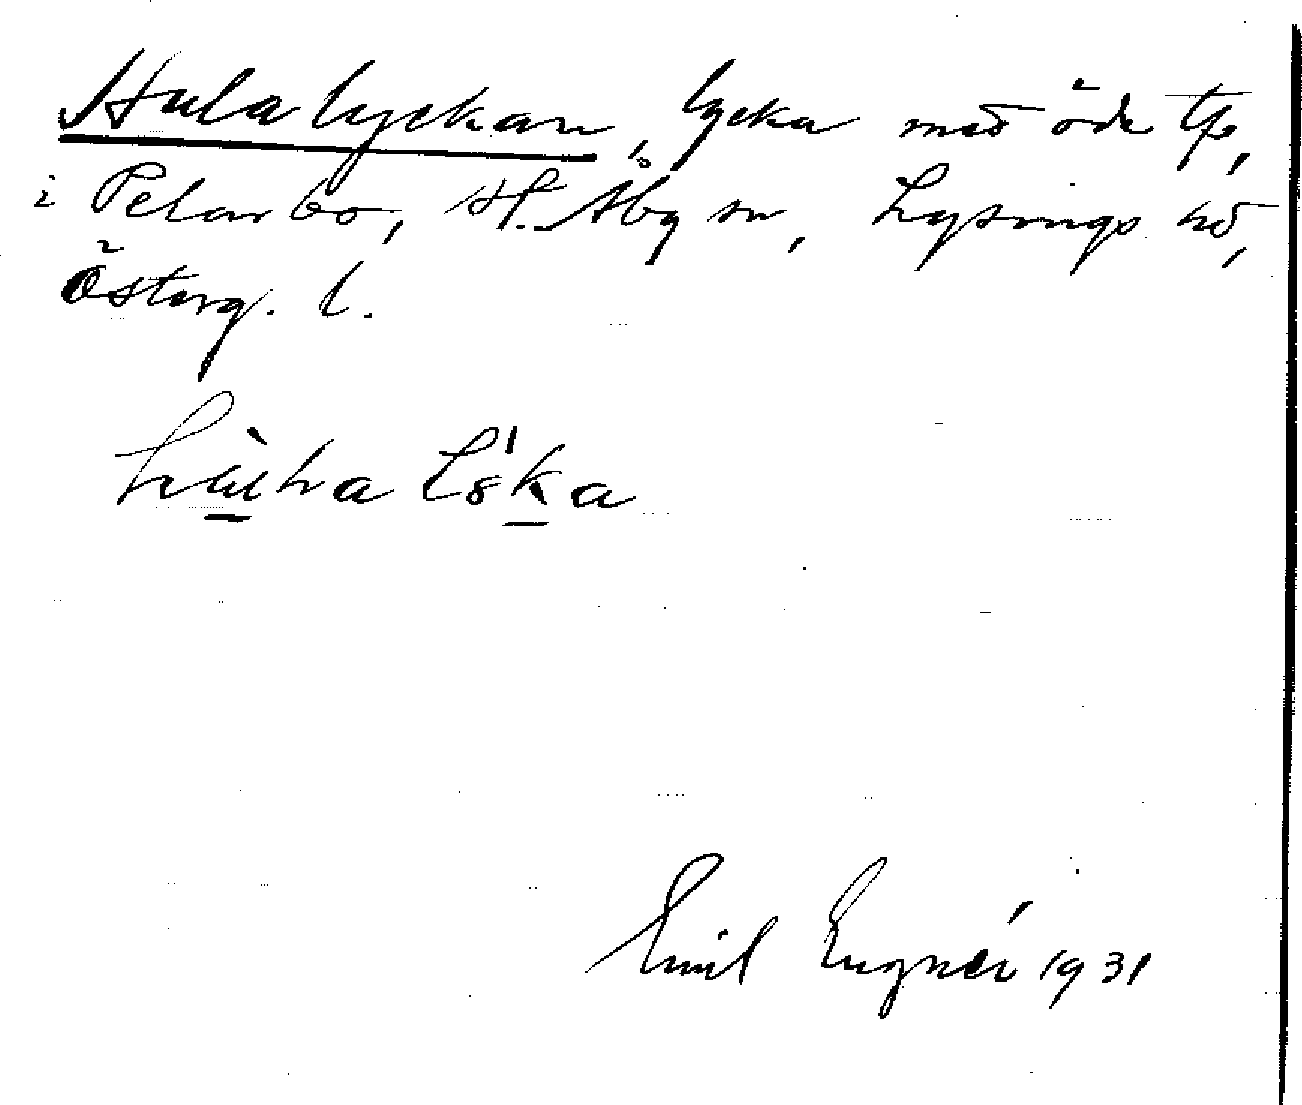 Hulalyckan, lycka med öde tp,
i Pelarbo, St. Åby sn, Lysings hd,
Österg. l.
Emil Eugnér 1931